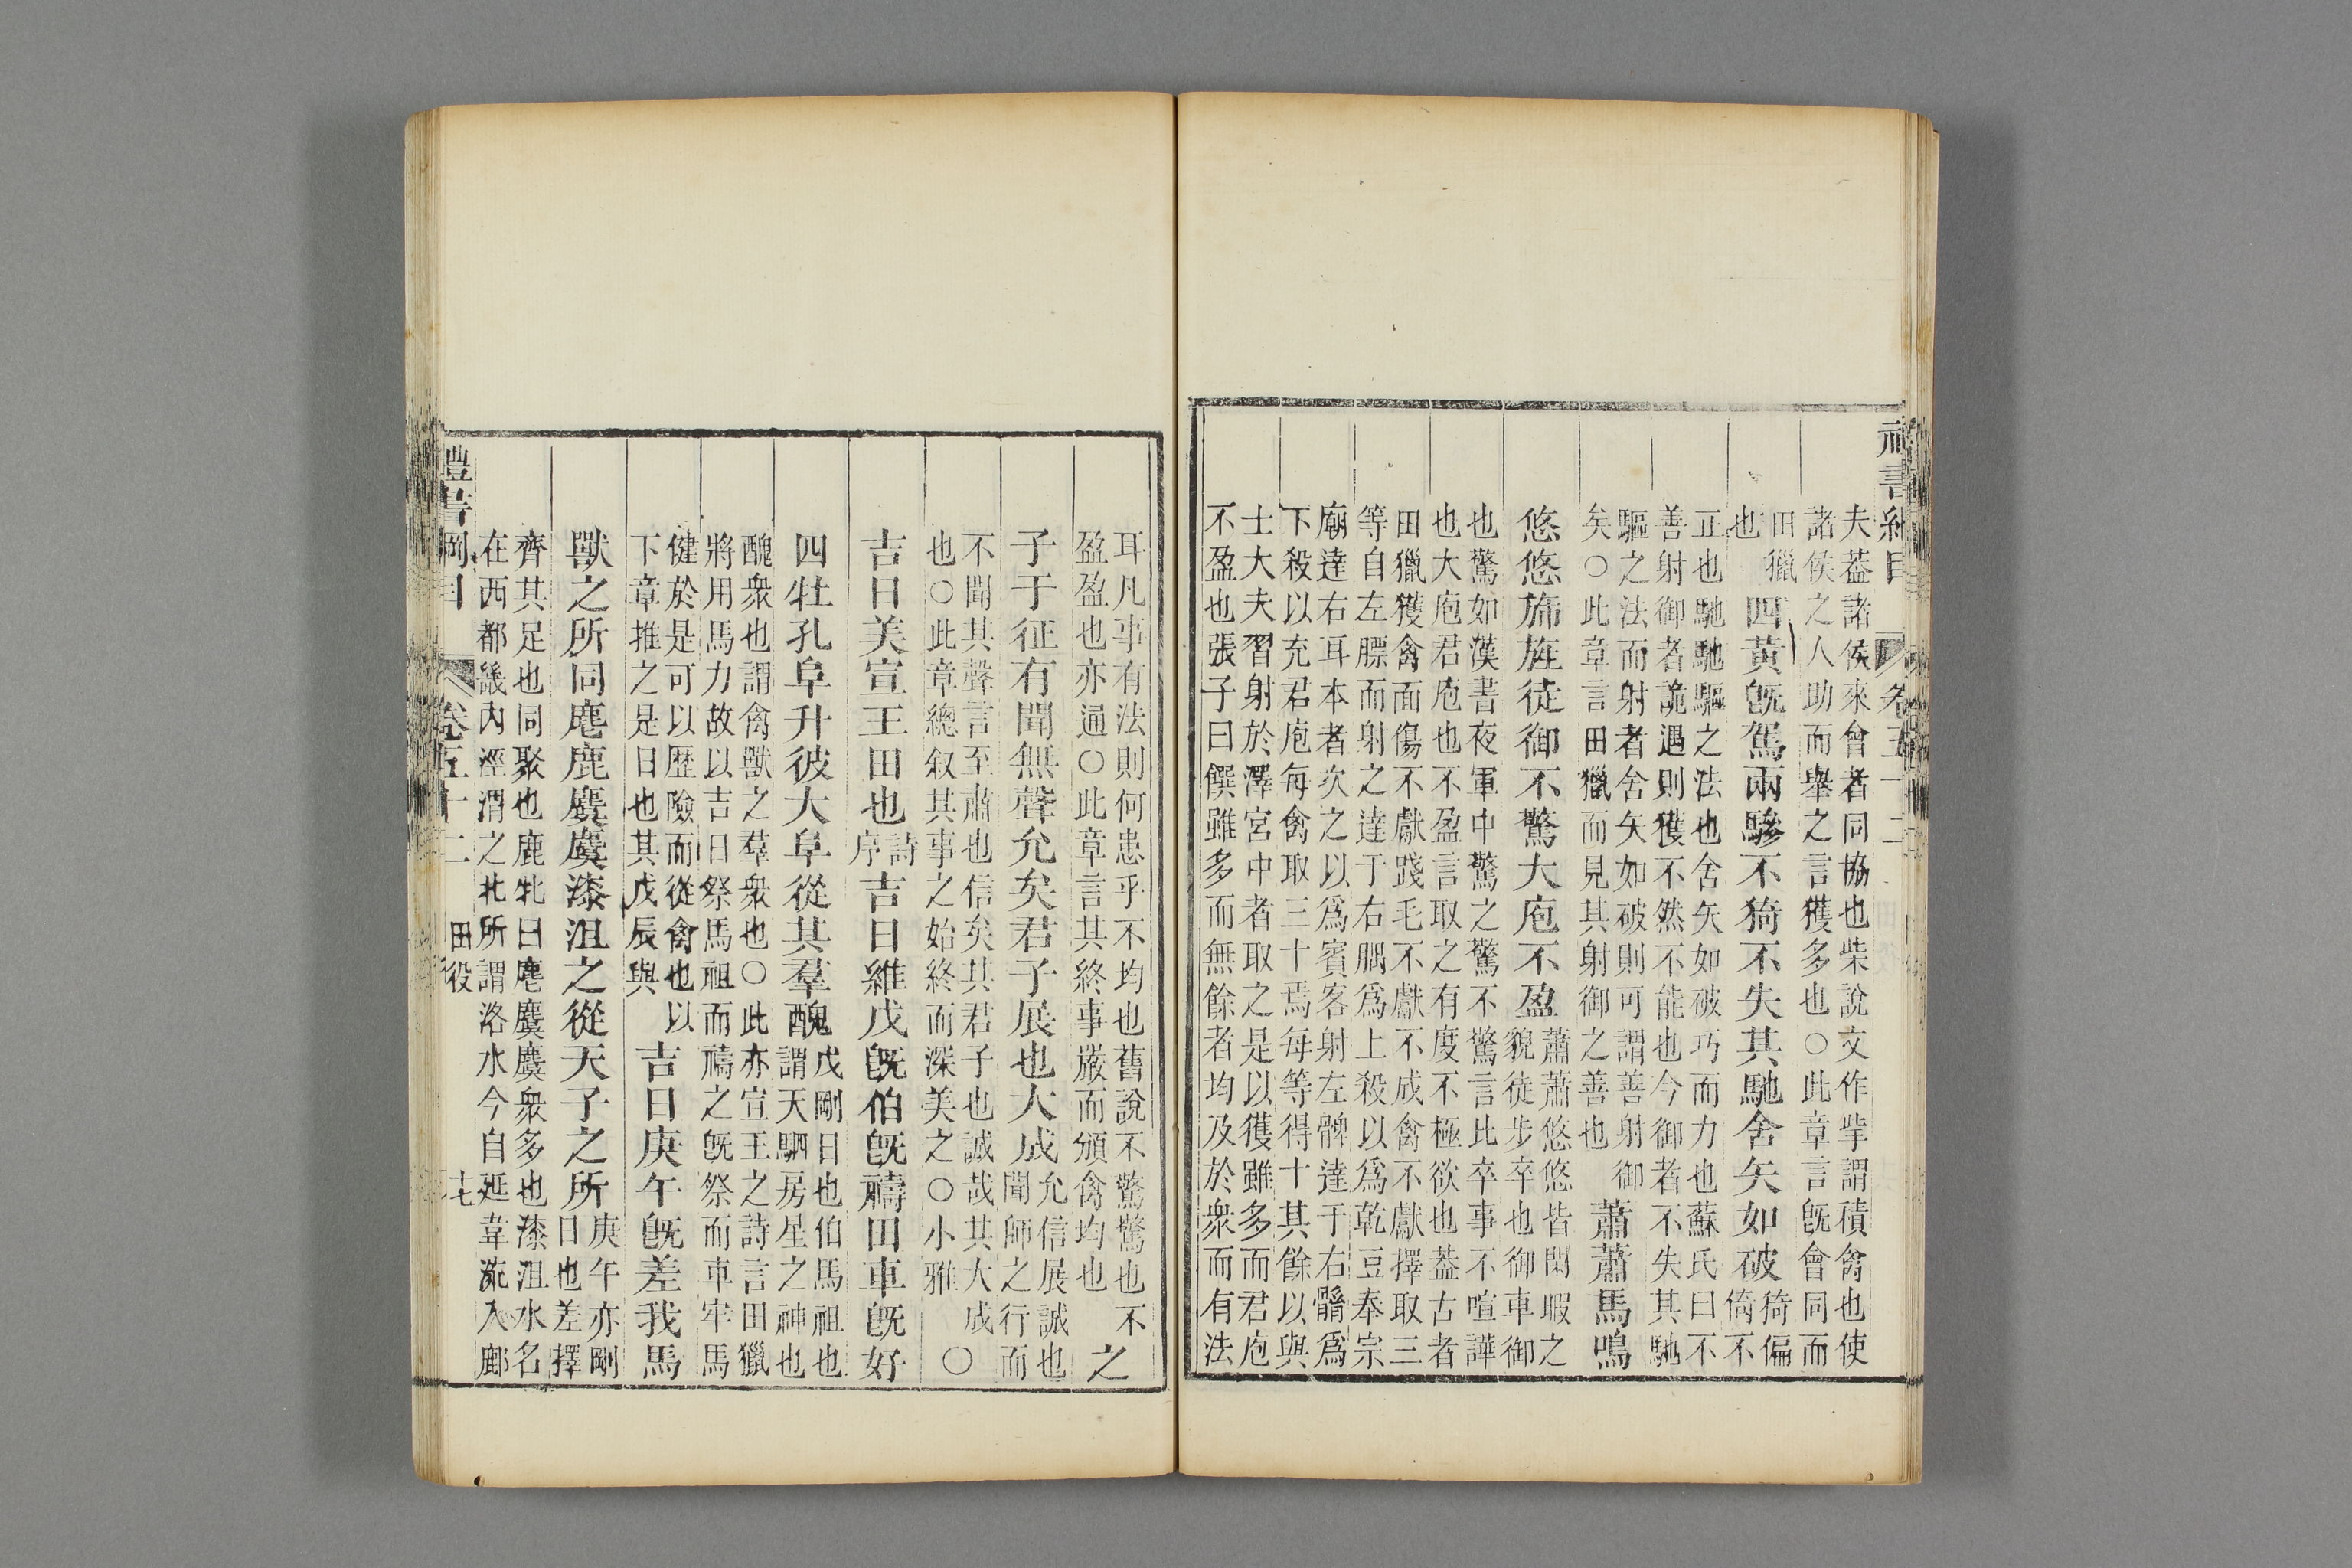 禮書綱目 卷五十二
夫葢諸侯來會者同協也柴說文作㧘謂積禽也使
諸侯之人助而舉之言獲多也○此章言旣會同而
田獵
也
四黃旣駕兩驂不猗不失其馳舍矢如破
猗偏
倚不
正也馳馳驅之法也舍矢如破巧而力也蘇氏曰不
善射御者詭遇則獲不然不能也今御者不失其馳
驅之法而射者舍矢如破則可謂善射御
矣○此章言田獵而見其射御之善也
蕭蕭馬鳴
悠悠旆旌徒御不驚大庖不盈
蕭蕭悠悠皆閑暇之
貌徒步卒也御車御
也驚如漢書夜軍中驚之驚不驚言比卒事不喧譁
也大庖君庖也不盈言取之有度不極欲也葢古者
田獵獲禽面傷不獻踐毛不獻不成禽不獻擇取三
等自左膘而射之達于右腢爲上殺以爲乾豆奉宗
廟達右耳本者次之以爲賓客射左髀達于右䯚爲
下殺以充君庖每禽取三十焉每等得十其餘以與
士大夫習射於澤宮中者取之是以獲雖多而君庖
不盈也張子曰饌雖多而無餘者均及於衆而有法
耳凡事有法則何患乎不均也舊說不驚驚也不
盈盈也亦通○此章言其終事嚴而頒禽均也
之
子于征有聞無聲允矣君子展也大成
允信展誠也
聞師之行而
不聞其聲言至肅也信矣其君子也誠哉其大成
也○此章總叙其事之始終而深美之○小雅
○
吉日美宣王田也
詩
序
吉日維戊旣伯旣禱田車旣好
四牡孔阜升彼大阜從其羣醜
戊剛日也伯馬祖也
謂天駟房星之神也
醜衆也謂禽獸之羣衆也○此亦宣王之詩言田獵
將用馬力故以吉日祭馬祖而禱之旣祭而車牢馬
健於是可以歷險而從禽也以
下章推之是日也其戊辰與
吉日庚午旣差我馬
獸之所同麀鹿麌麌漆沮之從天子之所
庚午亦剛
日也差擇
齊其足也同聚也鹿牝曰麀麌麌衆多也漆沮水名
在西都畿內涇渭之北所謂洛水今自延韋流入鄜
禮書綱目 卷五十二 田役 十七